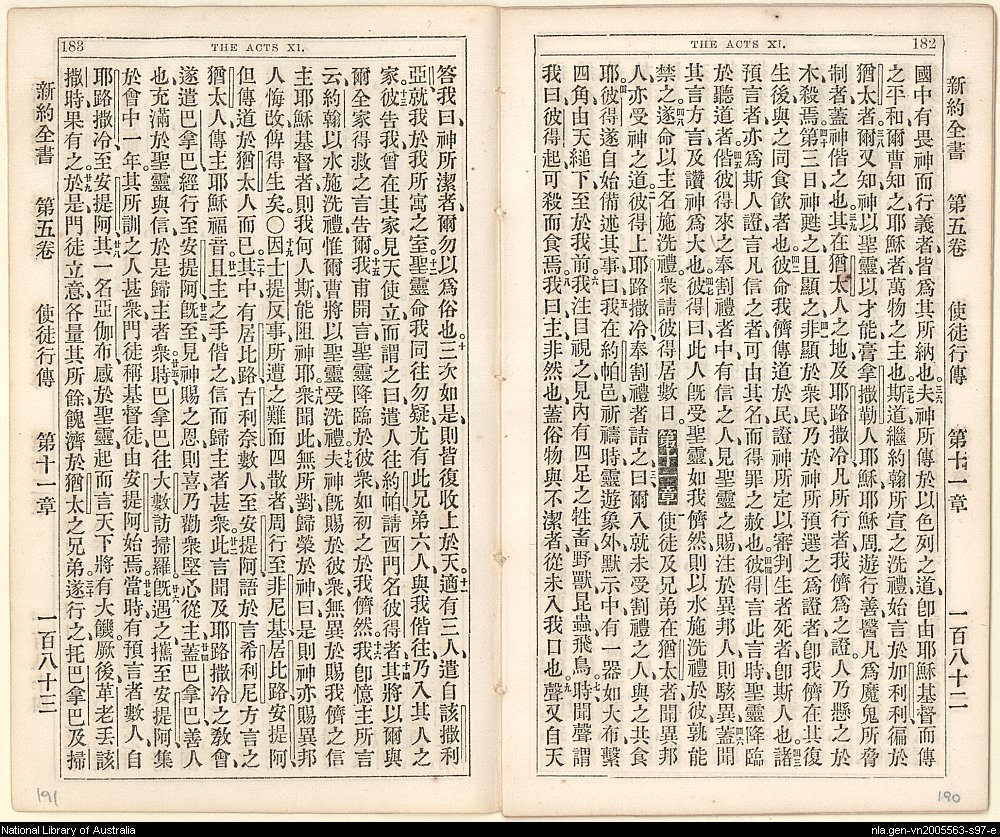 182
THE ACTS XI.
國中有畏神而行義者、皆爲其所納也、夫神所傳於以色列之道、卽由耶穌基督而傳
之平和、爾曹知之、耶穌者、萬物之主也、斯道繼約翰所宣之洗禮、始言於加利利、徧於
猶太者、爾又知神以聖靈以才能膏拿撒勒人耶穌、耶穌周遊行善、醫凡爲魔鬼所脅
制者、蓋神偕之也、其在猶太人之地、及耶路撒冷凡所行者、我儕爲之證、人乃懸之於
木殺焉、第三日神甦之、且顯之、非顯於衆民、乃於神所預選之爲證者、卽我儕在其復
生後、與之同食飲者也、彼命我儕傳道於民、證神所定以審判生者死者、卽斯人也、諸
預言者亦爲斯人證言、凡信之者、可由其名而得罪之赦也、彼得言此言時、聖靈降臨
於聽道者、偕彼得來之奉割禮者中、有信之人、見聖靈之賜注於異邦人、則駭異、蓋聞
其言方言、及讚神爲大也、彼得曰、此人旣受聖靈如我儕、然則以水施洗禮於彼、孰能
禁之、遂命以主名施洗禮、衆請彼得居數日。第十一章 使徒及兄弟在猶太者、聞異邦
人亦受神之道、彼得上耶路撒冷、奉割禮者詰之曰、爾入就未受割禮之人、與之共食
耶、彼得遂自始備述其事曰、我在約帕邑祈禱時、靈遊象外、默示中有一器如大布、繫
四角由天縋下、至於我前、我注目視之、見內有四足之牲畜野獸昆蟲飛鳥、時聞聲謂
我曰、彼得起可殺而食焉、我曰、主非然也、蓋俗物與不潔者、從未入我口也、聲又自天
新約全書 第五卷 使徒行傳 第十一章 一百八十二
190
183
THE ACTS XI.
答我曰、神所潔者、爾勿以爲俗也、三次如是、則皆復收上於天、適有三人、遣自該撒利
亞、就我於我所寓之室、聖靈命我同往勿疑、尤有此兄弟六人與我偕往、乃入其人之
家、彼告我曾在其家、見天使立而謂之曰、遣人往約帕、請西門名彼得者、其將以爾與
爾全家得救之言告爾、我甫開言、聖靈降臨於彼衆、如初之於我儕然、我卽憶主所言
云、約翰以水施洗禮、惟爾曹將以聖靈受洗禮、夫神旣賜於彼衆、無異於賜我儕之信
主耶穌基督者、則我何人斯、能阻神耶、衆聞此無所對、歸榮於神曰、是則神亦賜異邦
人悔改俾得生矣。〇因士提反事所遭之難而四散者、周行至非尼基居比路安提阿、
但傳道於猶太人而已、其中有居比路古利奈數人、至安提阿、語於言希利尼方言之
猶太人、傳主耶穌福音、且主之手偕之、信而歸主者甚衆、此言聞及耶路撒冷之敎會、
遂遣巴拿巴經行至安提阿、旣至見神賜之恩則喜、乃勸衆堅心從主、蓋巴拿巴善人
也、充滿於聖靈與信、於是歸主者衆、時巴拿巴往大數訪掃羅、旣遇之、攜至安提阿、集
於會中一年、其所訓之人甚衆、門徒稱基督徒、由安提阿始焉、當時有預言者數人、自
耶路撒冷至安提阿、其一名亞伽布、感於聖靈、起而言天下將有大饑、厥後革老丟該
撒時果有之、於是門徒立意各量其所餘餽濟於猶太之兄弟、遂行之、托巴拿巴及掃
新約全書 第五卷 使徒行傳 第十一章 一百八十三
191
National Library of Australia
nla.gen-vn2005563-s97-e